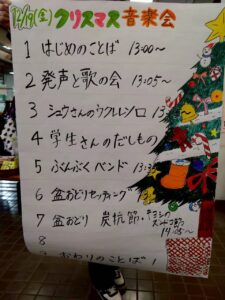 12/19(金)クリスマス音楽会
1 はじめのことば 13:00〜
2 発声と歌の会 13:05〜
3 ショウさんのウクレレソロ
4 学生さんのだしもの
5 ぶんぶくバンド
6 盆おどりセッティング
7 盆おどり 炭坑節
14:05〜
8
おわりのことば